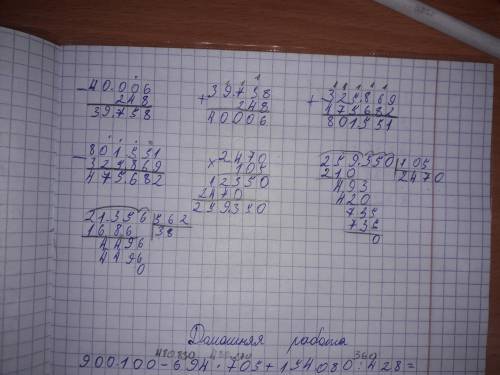 −40.006
248
39.758
+39.758
248
40006
+325.869
475682
801551
−801.551
325.869
475.682
×2470
105
12350
2470
259350
259350|105
210 2470
493
420
735
735
0
21.356|562
1686 38
4496
4496
0
Домашняя работа
360
900.100-694·705+154.080:428=